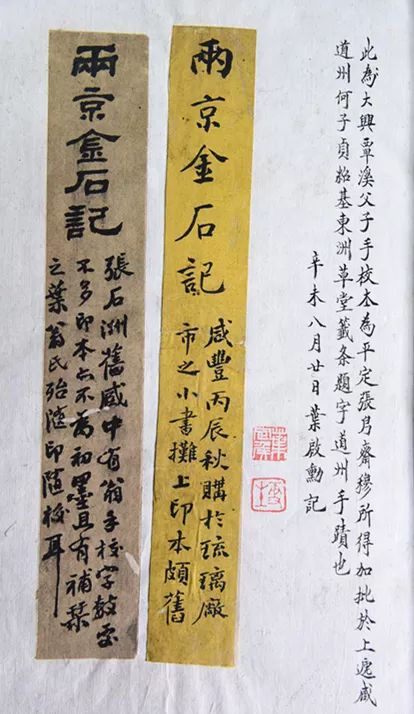 此為大興覃溪父子手校本為平定張㐆齋穆所得加批於上遞臧
道州何子貞紹基東洲草堂籤条題字道州手蹟也
辛未八月廿日葉啟勳記
兩京金石記
咸豐丙辰秋購於琉璃廠
市之小書攤上印本頗舊
兩京金石記
張石洲舊臧中有翁手校字數處
不多印本亦不為初墨且有補栞
之葉翁氏殆隨印隨校耳